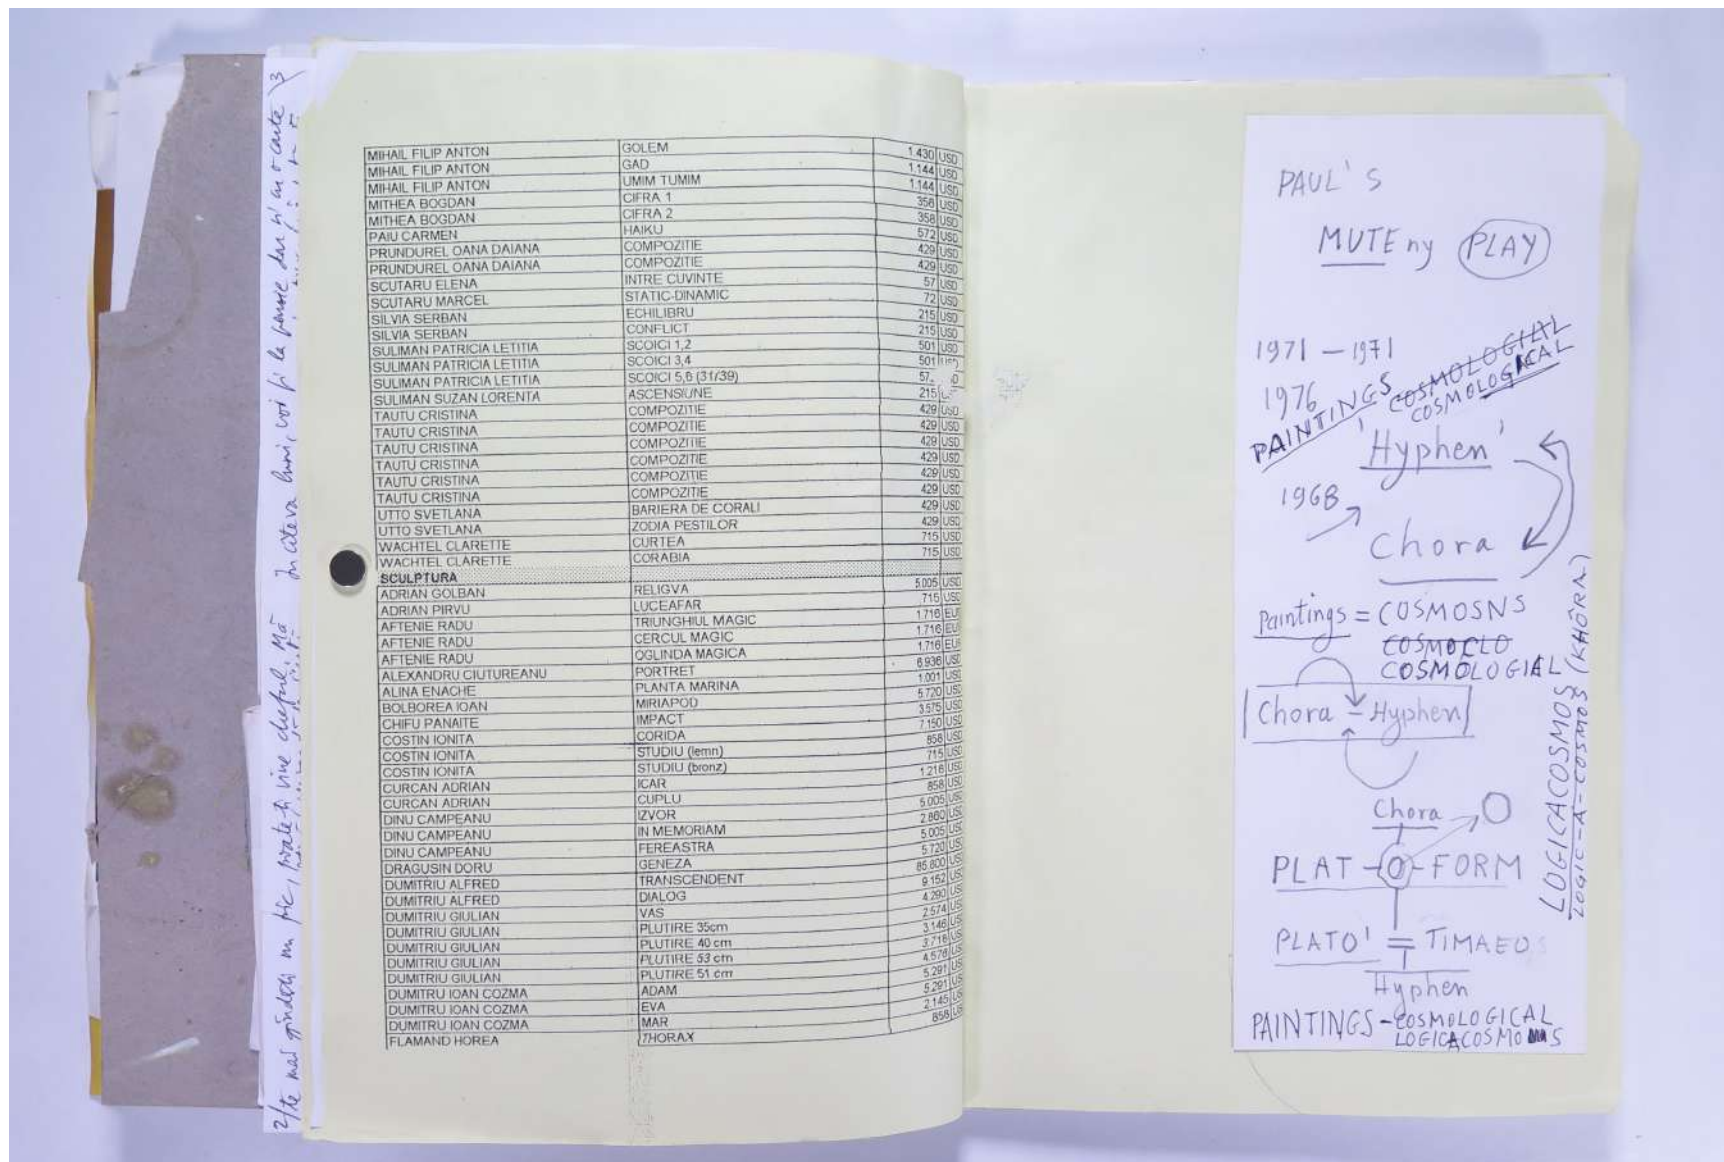 MIHAIL FILIP ANTON GOLEM 1.430 USD
MIHAIL FILIP ANTON GAD 1.144 USD
MIHAIL FILIP ANTON UMIM TUMIM 1.144 USD
MITHEA BOGDAN CIFRA 1 358 USD
MITHEA BOGDAN CIFRA 2 358 USD
PAIU CARMEN HAIKU 572 USD
PRUNDUREL OANA DAIANA COMPOZITIE 429 USD
PRUNDUREL OANA DAIANA COMPOZITIE 429 USD
SCUTARU ELENA INTRE CUVINTE 57 USD
SCUTARU MARCEL STATIC-DINAMIC 72 USD
SILVIA SERBAN ECHILIBRU 215 USD
SILVIA SERBAN CONFLICT 215 USD
SULIMAN PATRICIA LETITIA SCOICI 1,2 501 USD
SULIMAN PATRICIA LETITIA SCOICI 3,4 501 USD
SULIMAN PATRICIA LETITIA SCOICI 5,6 (31/39)
SULIMAN SUZAN LORENTA ASCENSIUNE 215
TAUTU CRISTINA COMPOZITIE 429 USD
TAUTU CRISTINA COMPOZITIE 429 USD
TAUTU CRISTINA COMPOZITIE 429 USD
TAUTU CRISTINA COMPOZITIE 429 USD
TAUTU CRISTINA COMPOZITIE 429 USD
TAUTU CRISTINA COMPOZITIE 429 USD
UTTO SVETLANA BARIERA DE CORALI 429 USD
UTTO SVETLANA ZODIA PESTILOR 429 USD
WACHTEL CLARETTE CURTEA 715 USD
WACHTEL CLARETTE CORABIA 715 USD
SCULPTURA
ADRIAN GOLBAN RELIGVA 5.005 USD
ADRIAN PIRVU LUCEAFAR 715 USD
AFTENIE RADU TRIUNGHIUL MAGIC 1.716 EU
AFTENIE RADU CERCUL MAGIC 1.716 EU
AFTENIE RADU OGLINDA MAGICA 1.716 EU
ALEXANDRU CIUTUREANU PORTRET 6.936 USD
ALINA ENACHE PLANTA MARINA 1.001 USD
BOLBOREA IOAN MIRIAPOD 5.720 USD
CHIFU PANAITE IMPACT 3.575 USD
COSTIN IONITA CORIDA 7.150 USD
COSTIN IONITA STUDIU (lemn) 858 USD
COSTIN IONITA STUDIU (bronz) 715 USD
CURCAN ADRIAN ICAR 1.216 USD
CURCAN ADRIAN CUPLU 858 USD
DINU CAMPEANU IZVOR 5.005 USD
DINU CAMPEANU IN MEMORIAM 2.860 USD
DINU CAMPEANU FEREASTRA 5.005 USD
DRAGUSIN DORU GENEZA 5.720 USD
DUMITRIU ALFRED TRANSCENDENT 85.800 USD
DUMITRIU ALFRED DIALOG 9.152 USD
DUMITRIU GIULIAN VAS 4.290 USD
DUMITRIU GIULIAN PLUTIRE 35cm 2.574 US
DUMITRIU GIULIAN PLUTIRE 40 cm 3.146 US
DUMITRIU GIULIAN PLUTIRE 53 cm 3.718 US
DUMITRIU GIULIAN PLUTIRE 51 cm 4.576 US
DUMITRU IOAN COZMA ADAM 5.291 US
DUMITRU IOAN COZMA EVA 5.291 US
DUMITRU IOAN COZMA MAR 2.145 US
FLAMAND HOREA THORAX 858 US
PAUL'S
MUTEny PLAY
1971 - 1971
1976
PAINTINGS COSMOLOGIAL
COSMOLOGICAL
'Hyphen'
1968
Chora
Paintings = COSMOSNS
COSMOCLO
COSMOLOGIAL
Chora - Hyphen
Chora
PLAT-O-FORM
PLATO' = TIMAEOS
Hyphen
PAINTINGS - COSMOLOGICAL
LOGICACOSMO S
LOGICACOSMOS
LOGIC-A-COSMOS (KHÔRA)